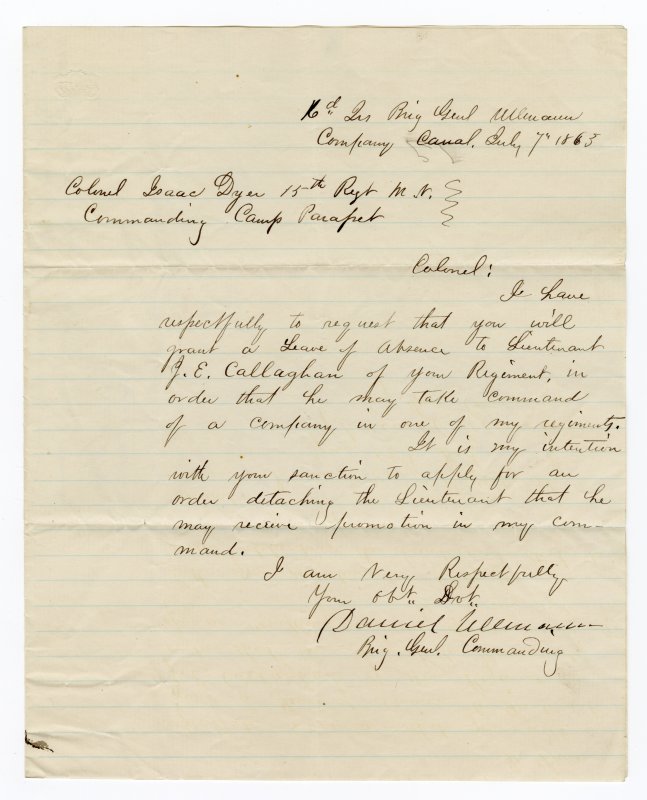 Hd Qrs Brig Genl Ullmann
Company Canal, July 7" 1863
Colonel Isaac Dyer 15th Regt M.V.
Commanding Camp Parapet
Colonel:
I have
respectfully to request that you will
grant a Leave of Absence to Lieutenant
J. E. Callaghan of your Regiment, in
order that he may take command
of a company in one of my regiments.
It is my intention
with your sanction to apply for an
order detaching the Lieutenant that he
may receive promotion in my com-
mand.
I am Very Respectfully
Your Obt" Svt"
Daniel Ullmann
Brig. Genl. Commanding